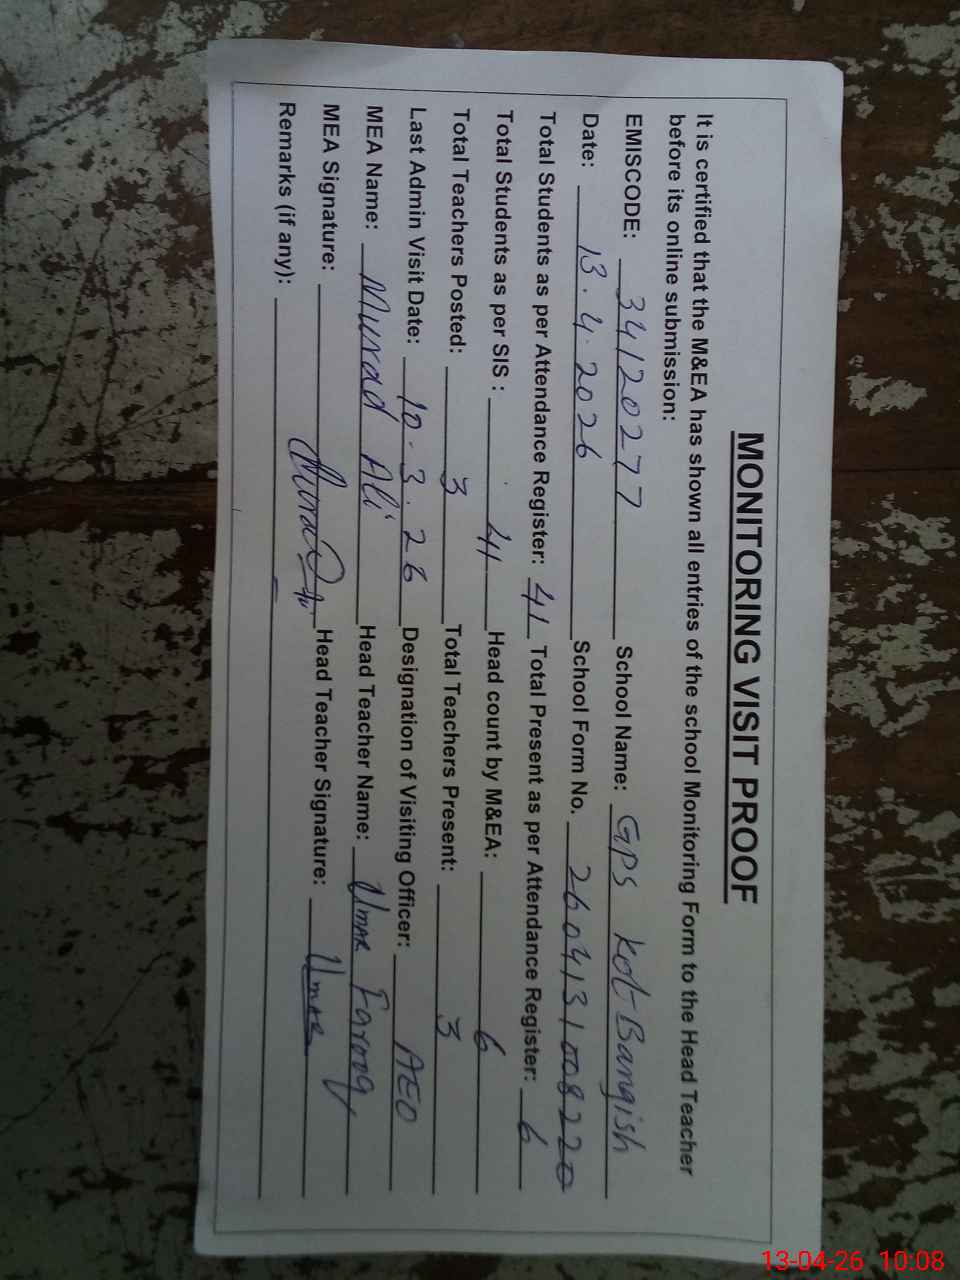 MONITORING VISIT PROOF
It is certified that the M&EA has shown all entries of the school Monitoring Form to the Head Teacher
before its online submission:
EMISCODE: 34120277 School Name: GPS Kot Bangish
Date: 13.4.2026 School Form No. 2604131008220
Total Students as per Attendance Register: 41 Total Present as per Attendance Register: 6
Total Students as per SIS : 41 Head count by M&EA: 6
Total Teachers Posted: 3 Total Teachers Present: 3
Last Admin Visit Date: 10.3.26 Designation of Visiting Officer: AEO
MEA Name: Murad Ali Head Teacher Name: Umar Farooq
MEA Signature: Head Teacher Signature: Umar
Remarks (if any): –
13-04-26 10:08